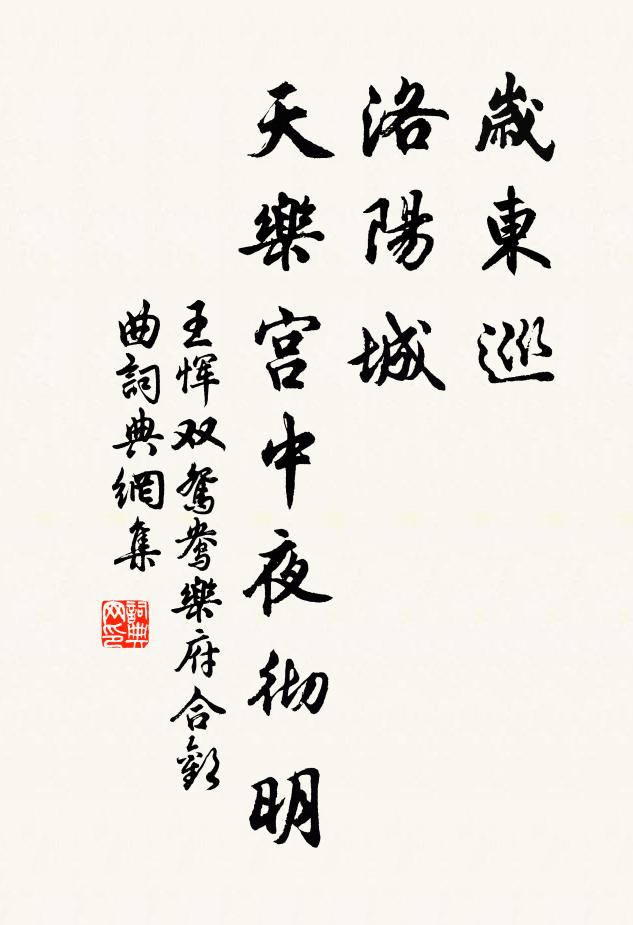 歲東巡
洛陽城
天樂宮中夜徹明
王惲双鴛鴦樂府合歡
曲詞典網集
詞典網印